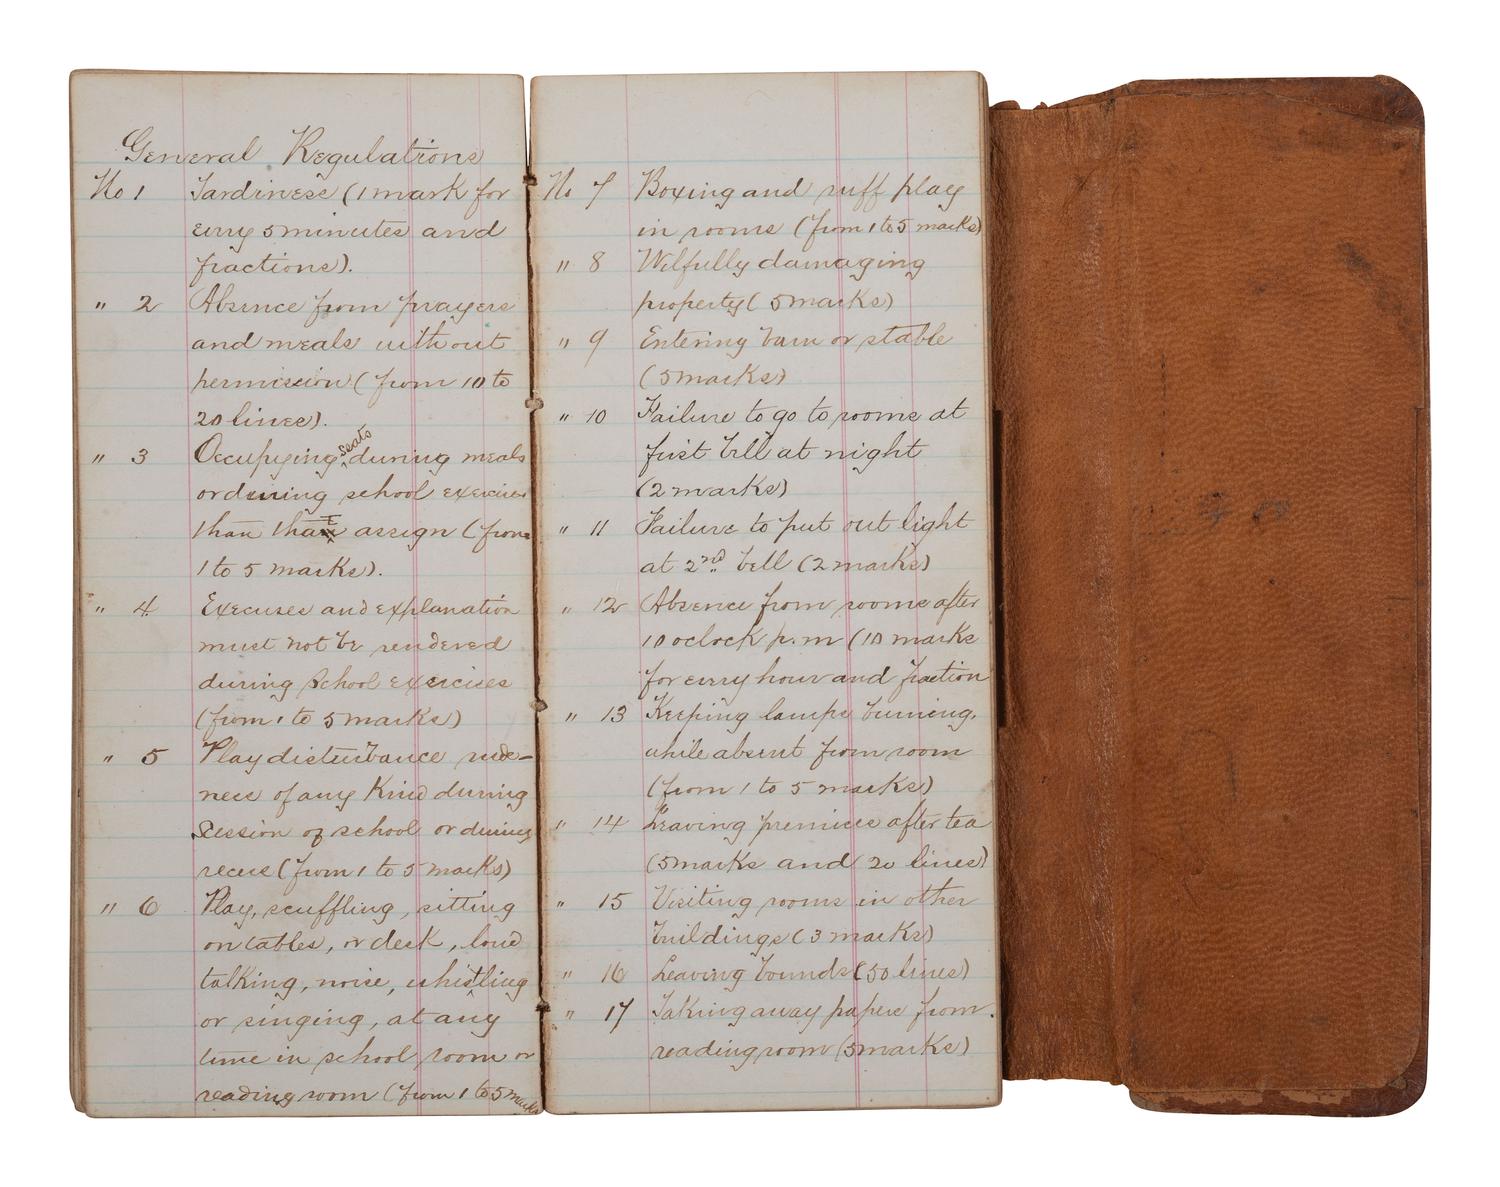 General Regulations
No 1 Tardiness (1 mark for
every 5 minutes and
fractions).
" 2 Absence from prayers
and meals without
permission (from 10 to
20 lines).
" 3 Occupying seats during meals
or during school exercises
than I assign (from
1 to 5 marks).
" 4 Execuses and explanation
must not be rendered
during School exercises
(from 1 to 5 marks)
" 5 Play disturbance rude-
ness of any Kind during
Session of school or during
recess (from 1 to 5 marks)
" 6 Play, scuffling, sitting
on tables, or desk, loud
talking, noise, whistling
or singing, at any
time in school room or
reading room (from 1 to 5 marks
No 7 Boxing and ruff play
in rooms (from 1 to 5 marks)
" 8 Wilfully damaging
property (5 marks)
" 9 Entering barn or stable
(5 marks)
" 10 Failure to go to rooms at
first bell at night
(2 marks)
" 11 Failure to put out light
at 2nd bell (2 marks)
" 12 Absence from rooms after
10 oclock p.m (10 marks
for every hour and fraction
" 13 Keeping lamps burning,
while absent from room
(from 1 to 5 marks)
" 14 Leaving premises after tea
(5 marks and 20 lines)
" 15 Visiting rooms in other
buildings (3 marks)
" 16 Leaving bounds (50 lines)
" 17 Taking away papers from
reading room (5 marks)